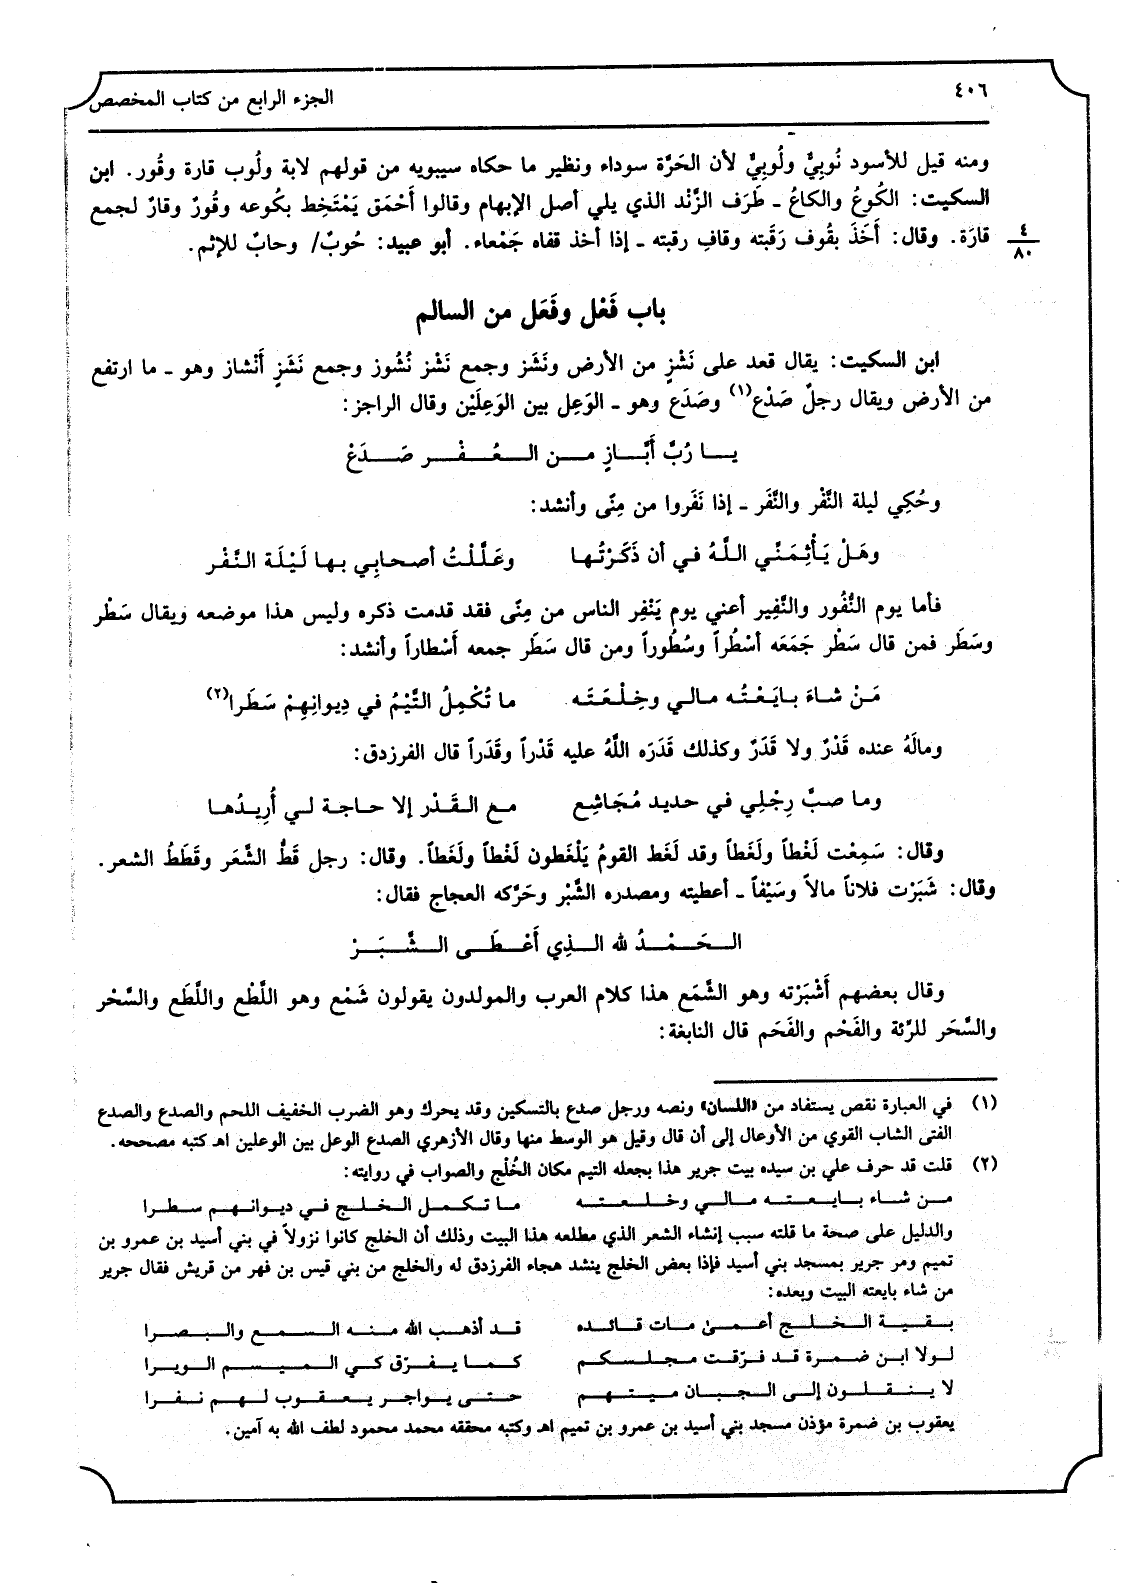 ٤٠٦
الجزء الرابع من كتاب المخصص
ومنه قيل للأسود نُوبِيٌّ ولُوبِيٌّ لأن الحَرَّة سوداء ونظير ما حكاه سيبويه من قولهم لابة ولُوب قارة وقُور. ابن
السكيت: الكُوعُ والكاعُ ـ طَرَف الزَّنْد الذي يلي أصل الإبهام وقالوا أَحْمَق يَمْتَخِط بكُوعه وقُورٌ وقارٌ لجمع
قارَة. وقال: أَخَذَ بقُوف رَقَبَته وقافِ رقبته ـ إذا أخذ قفاه جَمْعاء. أبو عبيد: حُوبٌ/ وحابٌ للإثم.
٤
٨٠
باب فَعْل وفَعَل من السالم
ابن السكيت: يقال قعد على نَشْزٍ من الأرض ونَشَز وجمع نَشْز نُشُوز وجمع نَشَزٍ أَنْشاز وهو ـ ما ارتفع
من الأرض ويقال رجلٌ صَدْع(١) وصَدَع وهو ـ الوَعِل بين الوَعِلَيْن وقال الراجز:
يا رُبَّ أَبَّازٍ من العُفْر صَدَعْ
وحُكِي ليلة النَّفْر والنَّفَر ـ إذا نَفَروا من مِنًى وأنشد:
وهَلْ يَأْثِمَنِّي اللهُ في أن ذَكَرْتُها وعَلَّلْتُ أصحابِي بها لَيْلَة النَّفْر
فأما يوم النُّفُور والنَّفِير أعني يوم يَنْفِر الناس من مِنًى فقد قدمت ذكره وليس هذا موضعه ويقال سَطْر
وسَطَر فمن قال سَطْر جَمَعَه أسْطُراً وسُطُوراً ومن قال سَطَر جمعه أَسْطاراً وأنشد:
مَنْ شاءَ بايَعْتُه مالي وخِلْعَتَه ما تُكْمِلُ التَّيْمُ في دِيوانِهِمْ سَطَرا(٢)
ومالَهُ عنده قَدْرٌ ولا قَدَرٌ وكذلك قَدَرَه اللَّهُ عليه قَدْراً وقَدَراً قال الفرزدق:
وما صبَّ رِجْلِي في حديد مُجَاشِع مع القَدْر إلا حاجة لي أُرِيدُها
وقال: سَمِعْت لَغْطاً ولَغَطاً وقد لَغَط القومُ يَلْغَطون لَغْطاً ولَغَطاً. وقال: رجل قَطُّ الشَّعَر وقَطَطُ الشعر.
وقال: شَبَرْت فلاناً مالاً وسَيْفاً ـ أعطيته ومصدره الشَّبْر وحَرَّكه العجاج فقال:
الحَمْدُ لله الذِي أَعْطَى الشَّبَرْ
وقال بعضهم أَشْبَرْته وهو الشَّمَع هذا كلام العرب والمولدون يقولون شَمْع وهو اللَّطْع واللَّطَع والسَّحْر
والسَّحَر للرِّئة والفَحْم والفَحَم قال النابغة:
(١) في العبارة نقص يستفاد من «اللسان» ونصه ورجل صدع بالتسكين وقد يحرك وهو الضرب الخفيف اللحم والصدع والصدع
الفتى الشاب القوي من الأوعال إلى أن قال وقيل هو الوسط منها وقال الأزهري الصدع الوعل بين الوعلين اهـ كتبه مصححه.
(٢) قلت قد حرف علي بن سيده بيت جرير هذا بجعله التيم مكان الخُلْج والصواب في روايته:
من شاء بايعته مالي وخلعته ما تكمل الخلج في ديوانهم سطرا
والدليل على صحة ما قلته سبب إنشاء الشعر الذي مطلعه هذا البيت وذلك أن الخلج كانوا نزولاً في بني أسيد بن عمرو بن
تميم ومر جرير بمسجد بني أسيد فإذا بعض الخلج ينشد هجاء الفرزدق له والخلج من بني قيس بن فهر من قريش فقال جرير
من شاء بايعته البيت وبعده:
بقية الخلج أعمىٰ مات قائده قد أذهب الله منه السمع والبصرا
لولا ابن ضمرة قد فرّقت مجلسكم كما يفرّق كي الميسم الوبرا
لا ينقلون إلى الجبان ميتهم حتى يواجر يعقوب لهم نفرا
يعقوب بن ضمرة مؤذن مسجد بني أسيد بن عمرو بن تميم اهـ وكتبه محققه محمد محمود لطف الله به آمين.